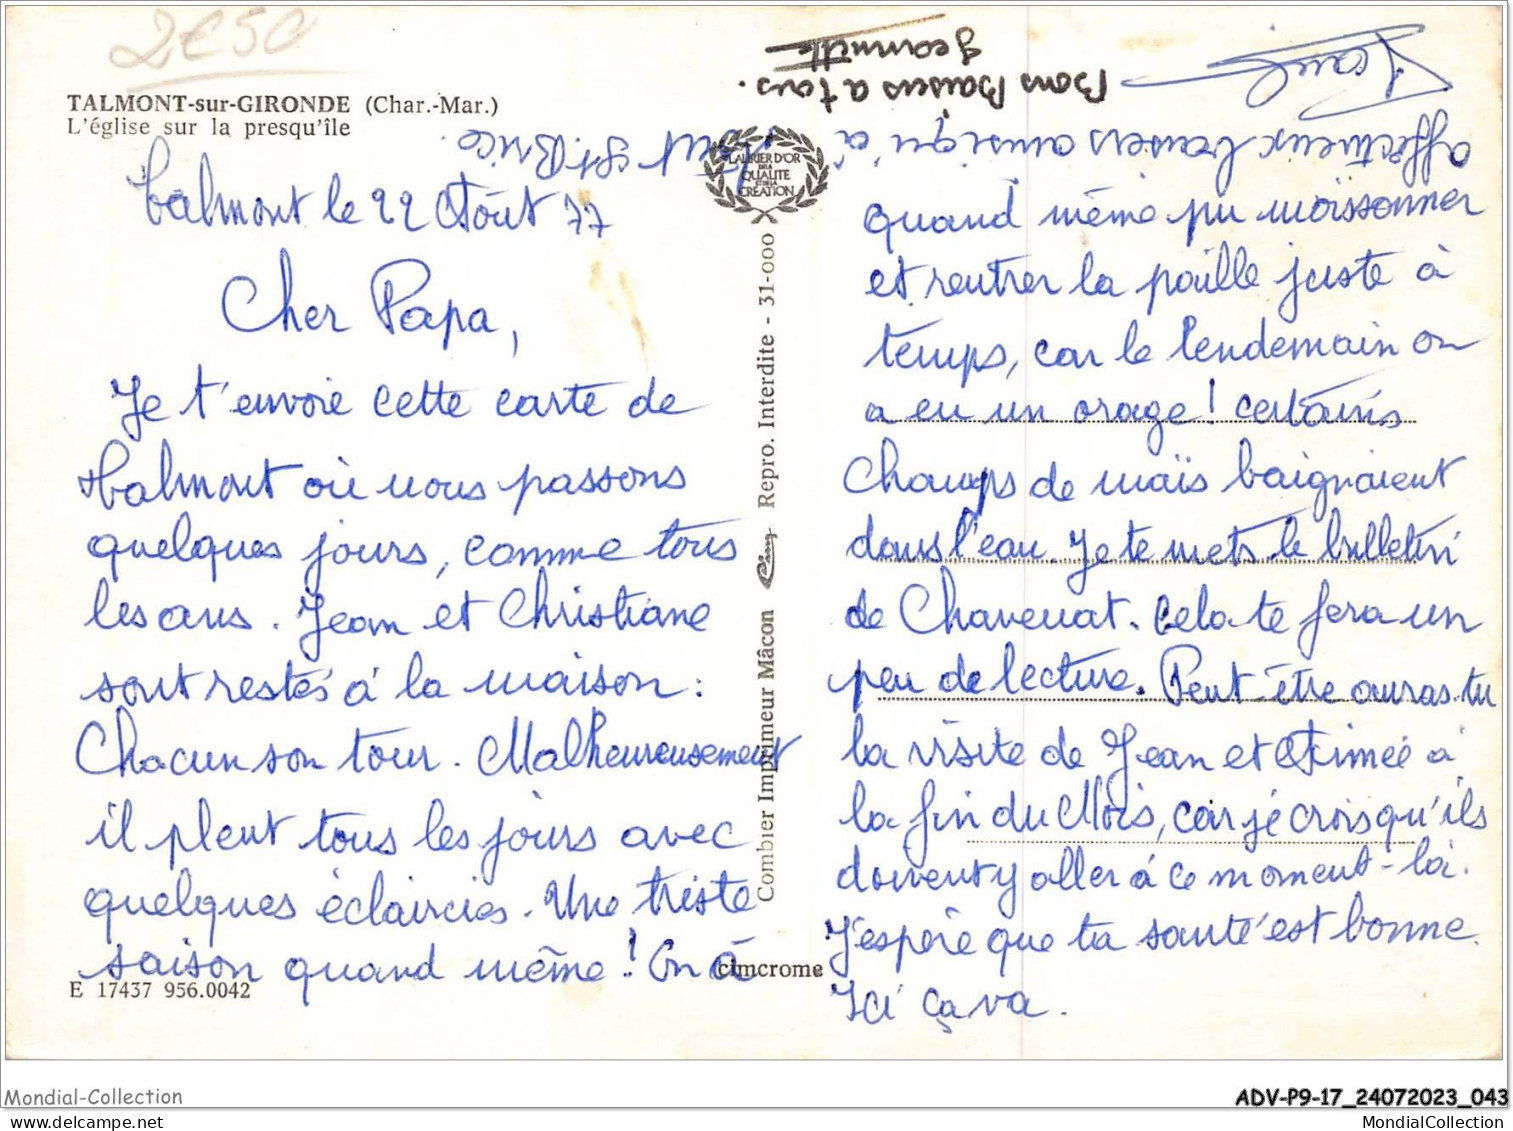 2€50
TALMONT-sur-GIRONDE (Char.-Mar.)
L'église sur la presqu'île
Talmont le 22 Août 77
Cher Papa,
Je t'envoie cette carte de
Talmont où nous passons
quelques jours, comme tous
les ans. Jean et Christiane
sont restés à la maison :
Chacun son tour. Malheureusement
il pleut tous les jours avec
quelques éclaircies. Une triste
saison quand même ! On a
quand même pu moissonner
et rentrer la paille juste à
temps, car le lendemain on
a eu un orage ! certains
champs de maïs baignaient
dans l'eau. Je te mets le bulletin
de Chavenat. Cela te fera un
peu de lecture. Peut-être auras-tu
la visite de Jean et Aimée à
la fin du Mois, car je crois qu'ils
doivent y aller à ce moment-là.
J'espère que ta santé est bonne.
Ici ça va.
affectueux baisers ainsi qu'à
tout St. Brice.
Bons Baisers a tous.
Jeannette
LAURIER D'OR
DE LA
QUALITE
ET DE LA
CREATION
Combier Imprimeur Mâcon Cim Repro. Interdite - 31-000
cimcrome
E 17437 956.0042
Mondial-Collection
ADV-P9-17_24072023_043
MondialCollection